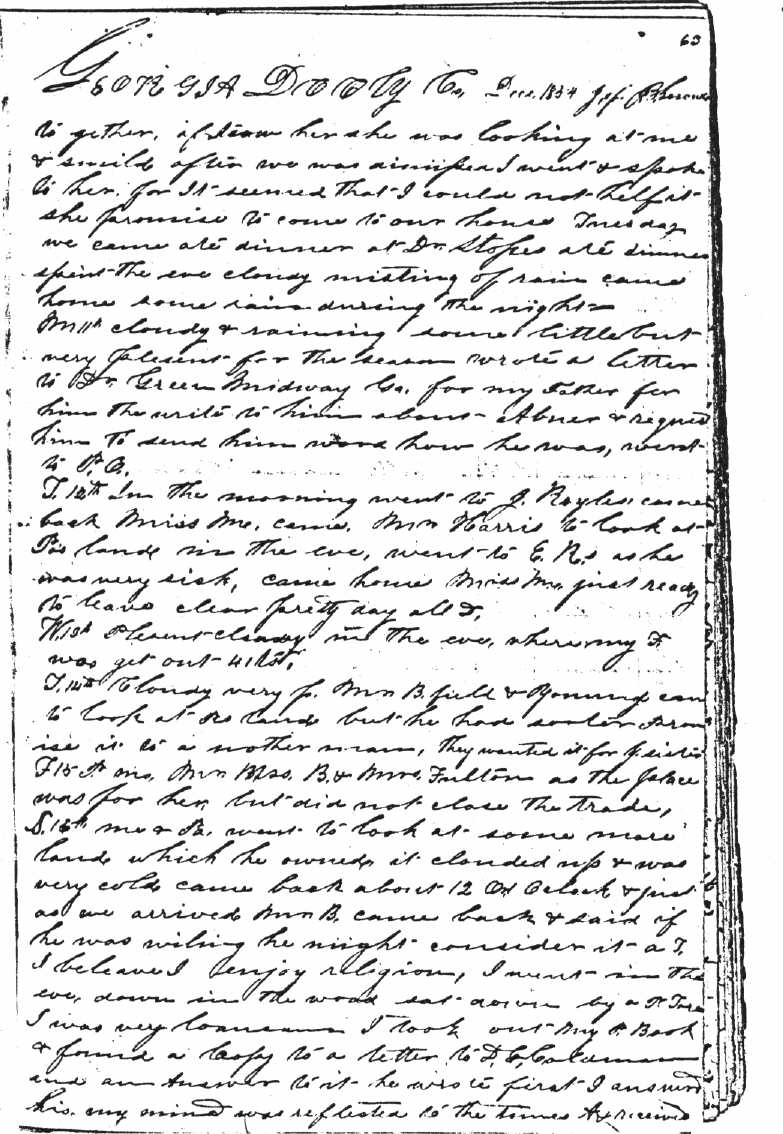 63
GEORGIA DOOly Co, Dec. 1854
to gether, if I saw her she was looking at me
& smild after we was dismised I went & spoke
to her, for It seemed that I could not helf it
she promise to come to our house Tuesday
we came ate dinner at Dr. Stopes ate dinner
spent the eve cloudy misting of rain came
home some rain during the night
M 11th cloudy & raining some little but
very plesent for the season wrote a letter
to Dr Green Midway Ga, for my Father for
him the write to him about Abner & request
him to send him word how he was, went
to P.O.
T. 12th In the morning went to J. Royles came
back Miss Mc, came, Mr Harris to look at
Pa's land in the eve, went to E. R.s as he
was very sick, came home Miss Mc, just ready
to leave clear pretty day all D,
W. 13th Plesent cloudy in the eve, where my F
was get out
T. 14th Cloudy very p. Mr B. full & Young cam
to look at his land but he had sooler Prom
ise it to a nother man, they wanted it for
F 15 P mo, Mr Blss. B. & Mrs. Fulton as the place
was for her, but did not close the trade,
S. 16th me & B. went to look at some more
land which he owned, it clouded up & was
very cold came back about 12 Oclock & just
as we arrived Mr B. came back & said if
he was wiling he might consider it a T.
I beleave I enjoy religion, I went in the
eve, down in the wood sat down by a P Tree
I was very lonesome I took out my P. Book
& found a Copy to a letter to D. C. Coleman
and an Answer to it he wrote first I answerd
his, my mind was reflected to the times I received